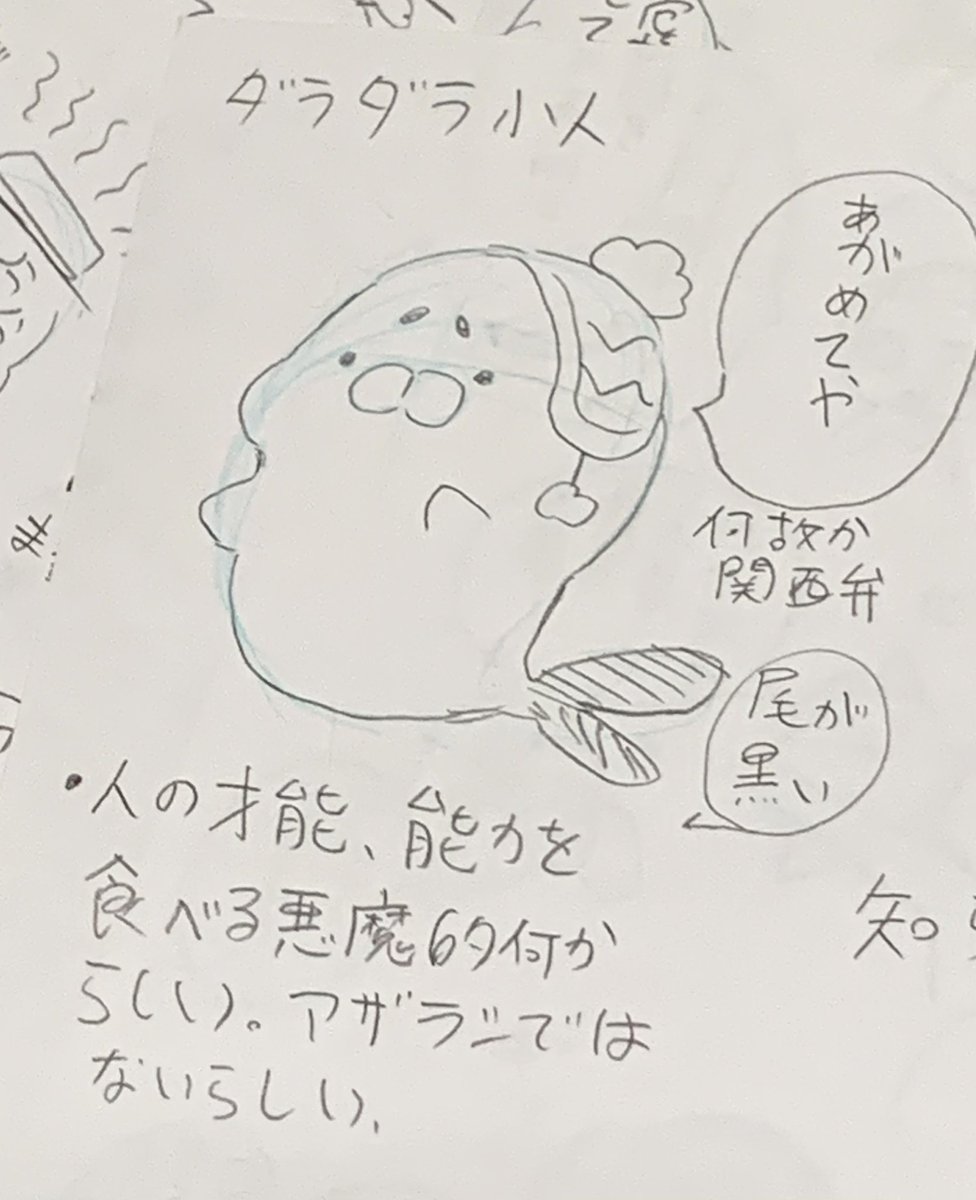 ダラダラ小人
あがめてや
何故か
関西弁
尾が
黒い
・人の才能、能力を
食べる悪魔的何か
らしい。アザラシでは
ないらしい、
知